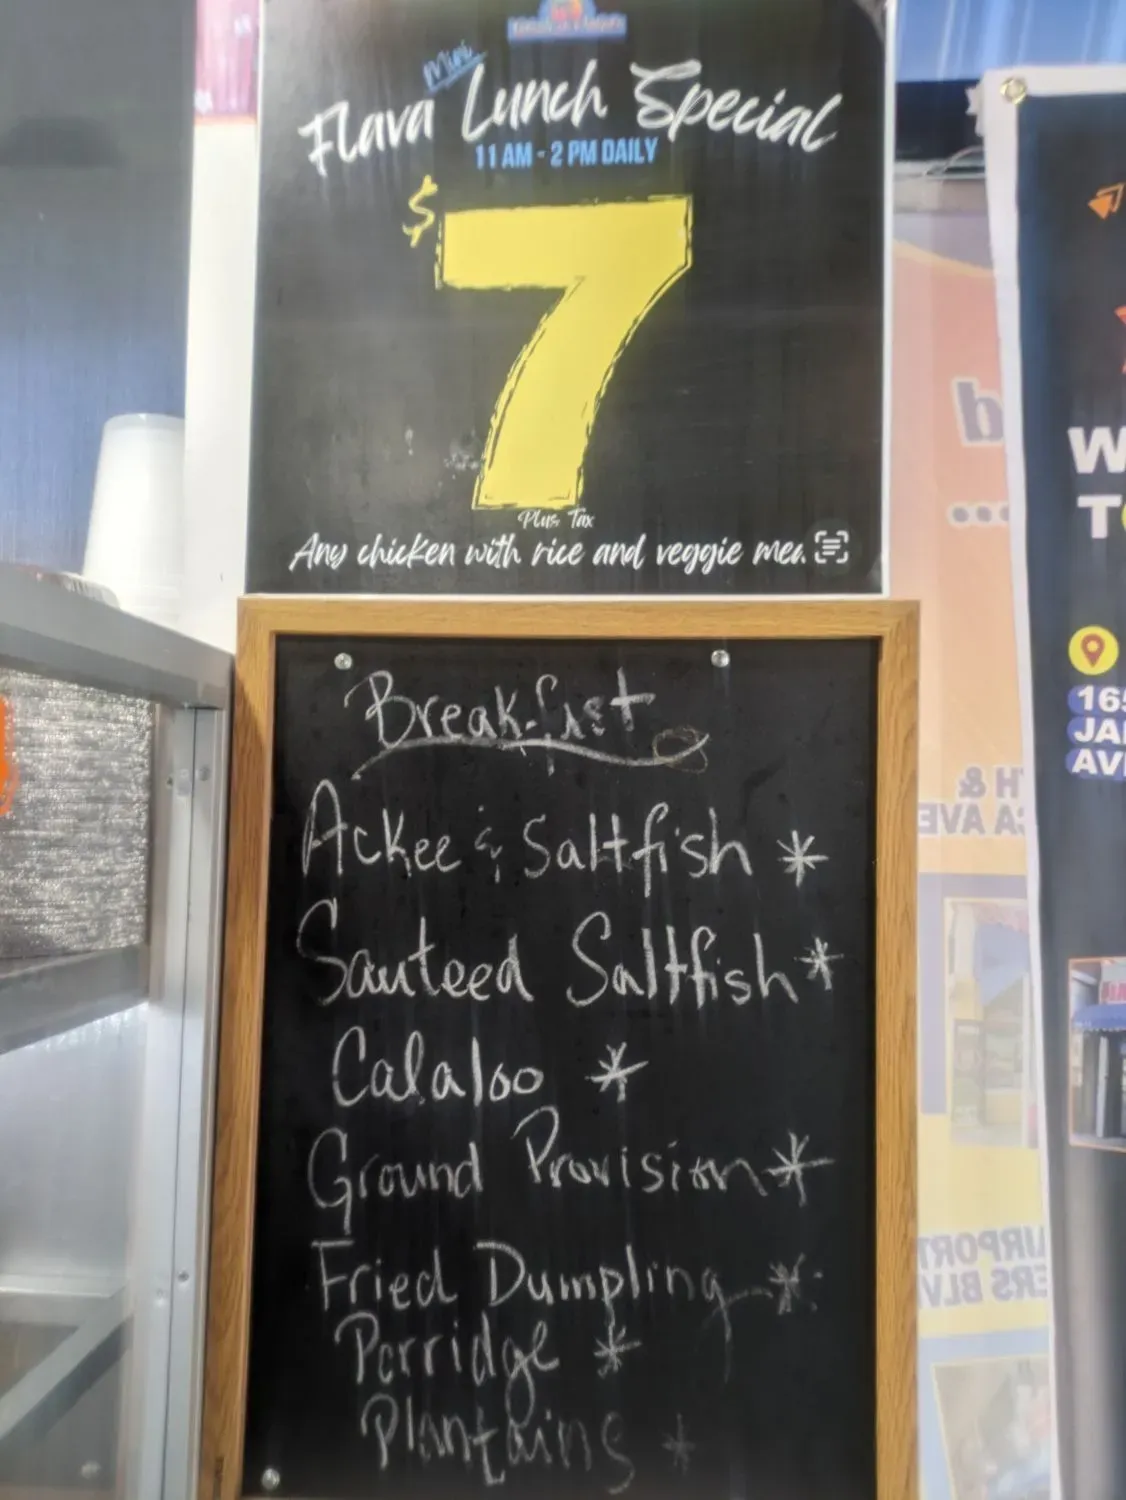 Mini
Flava Lunch Special
11 AM - 2 PM DAILY
$7
Plus Tax
Any chicken with rice and veggie
Breakfast
Ackee & Saltfish *
Sauteed Saltfish *
Calaloo *
Ground Provision *
Fried Dumpling *
Porridge *
Plantains *
W
T
165
JA
AV
H &
CA AVE
URPORT
ERS BLV